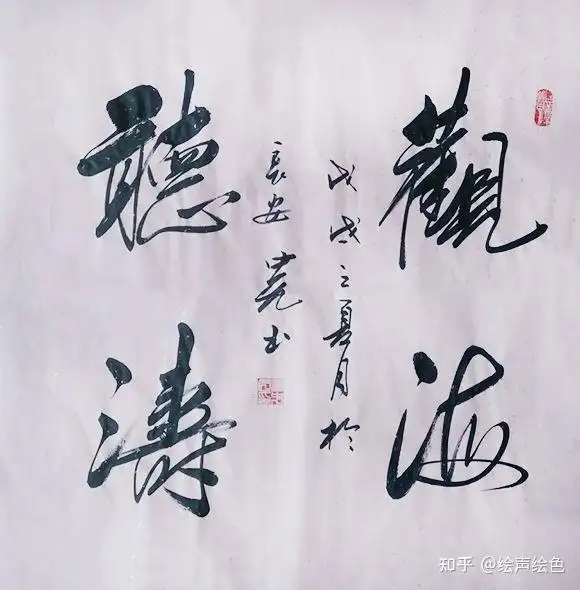 觀海
聽濤
戊戌之夏月於
長安书
知乎 @绘声绘色